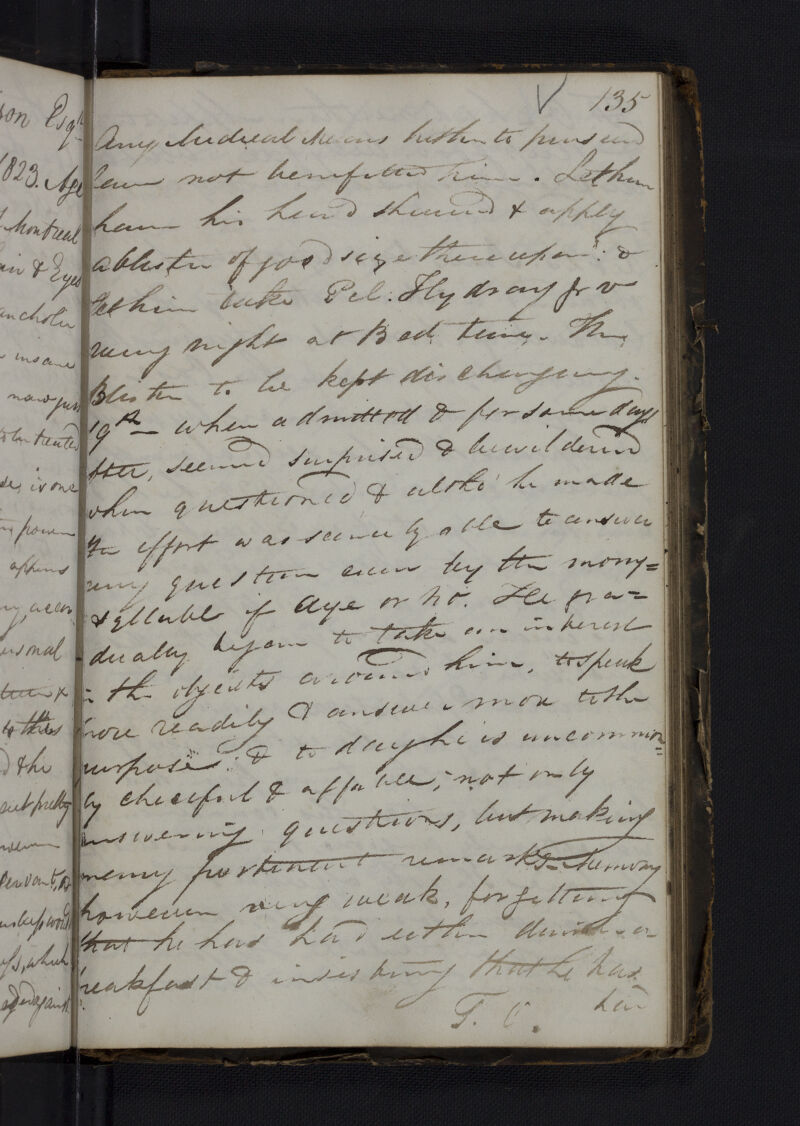 son Esqr
1823. Age
Montreal
& Eyes
insane
now
treated
is one
power
& the
pretty
which
against
135
Any Medical Means hitherto pursued
have not benefitted him. Let him
have his head shaved & apply
a blister of good size thereupon: &
let him take Pil: Hydrarg gr v
every night at Bed time. The
Blister to be kept discharging.
19th – when admitted & for some days
after, seemed surprised & bewildered
when questioned & altho' he made
the effort was scarcely able to answer
any question even by the mony=
syllable of Aye or No. He gra=
dually began to take an interest
in the objects around him, to speak
more readily & answer more to the
purpose: & to day he is uncommon=
ly cheerful & affable, not only
answering questions, but making
many pertinent remarks – Memory
however very weak, forgetting
that he has had either dinner or
breakfast & insisting that he has
T. O. had